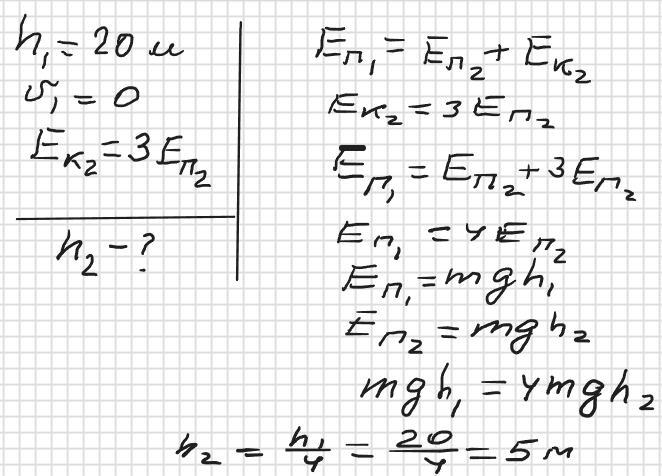 h₁ = 20 м
υ₁ = 0
Eк₂ = 3Eп₂
h₂ - ?
Eп₁ = Eп₂ + Eк₂
Eк₂ = 3Eп₂
Eп₁ = Eп₂ + 3Eп₂
Eп₁ = 4Eп₂
Eп₁ = mgh₁
Eп₂ = mgh₂
mgh₁ = 4mgh₂
h₂ = h₁/4 = 20/4 = 5 м